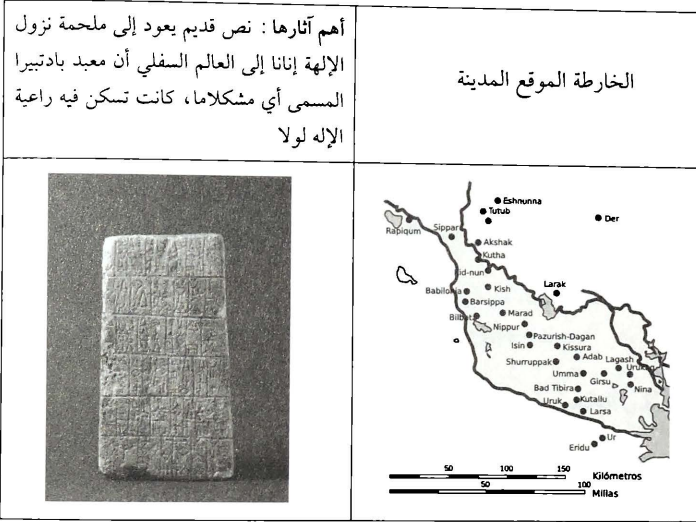 أهم آثارها : نص قديم يعود إلى ملحمة نزول
الإلهة إنانا إلى العالم السفلي أن معبد بادتبيرا
المسمى أي مشكلاما، كانت تسكن فيه راعية
الإله لولا
الخارطة الموقع المدينة
Eshnunna
Tutub
Der
Rapiqum
Sippar
Akshak
Kutha
Kid-nun
Larak
Kish
Babilonia
Barsippa
Marad
Bilbat
Nippur
Pazurish-Dagan
Isin
Kissura
Adab
Lagash
Shurruppak
Umma
Girsu
Nina
Bad Tibira
Uruk
Kutallu
Larsa
Ur
Eridu
50 100 150 Kilómetros
50 100 Millas